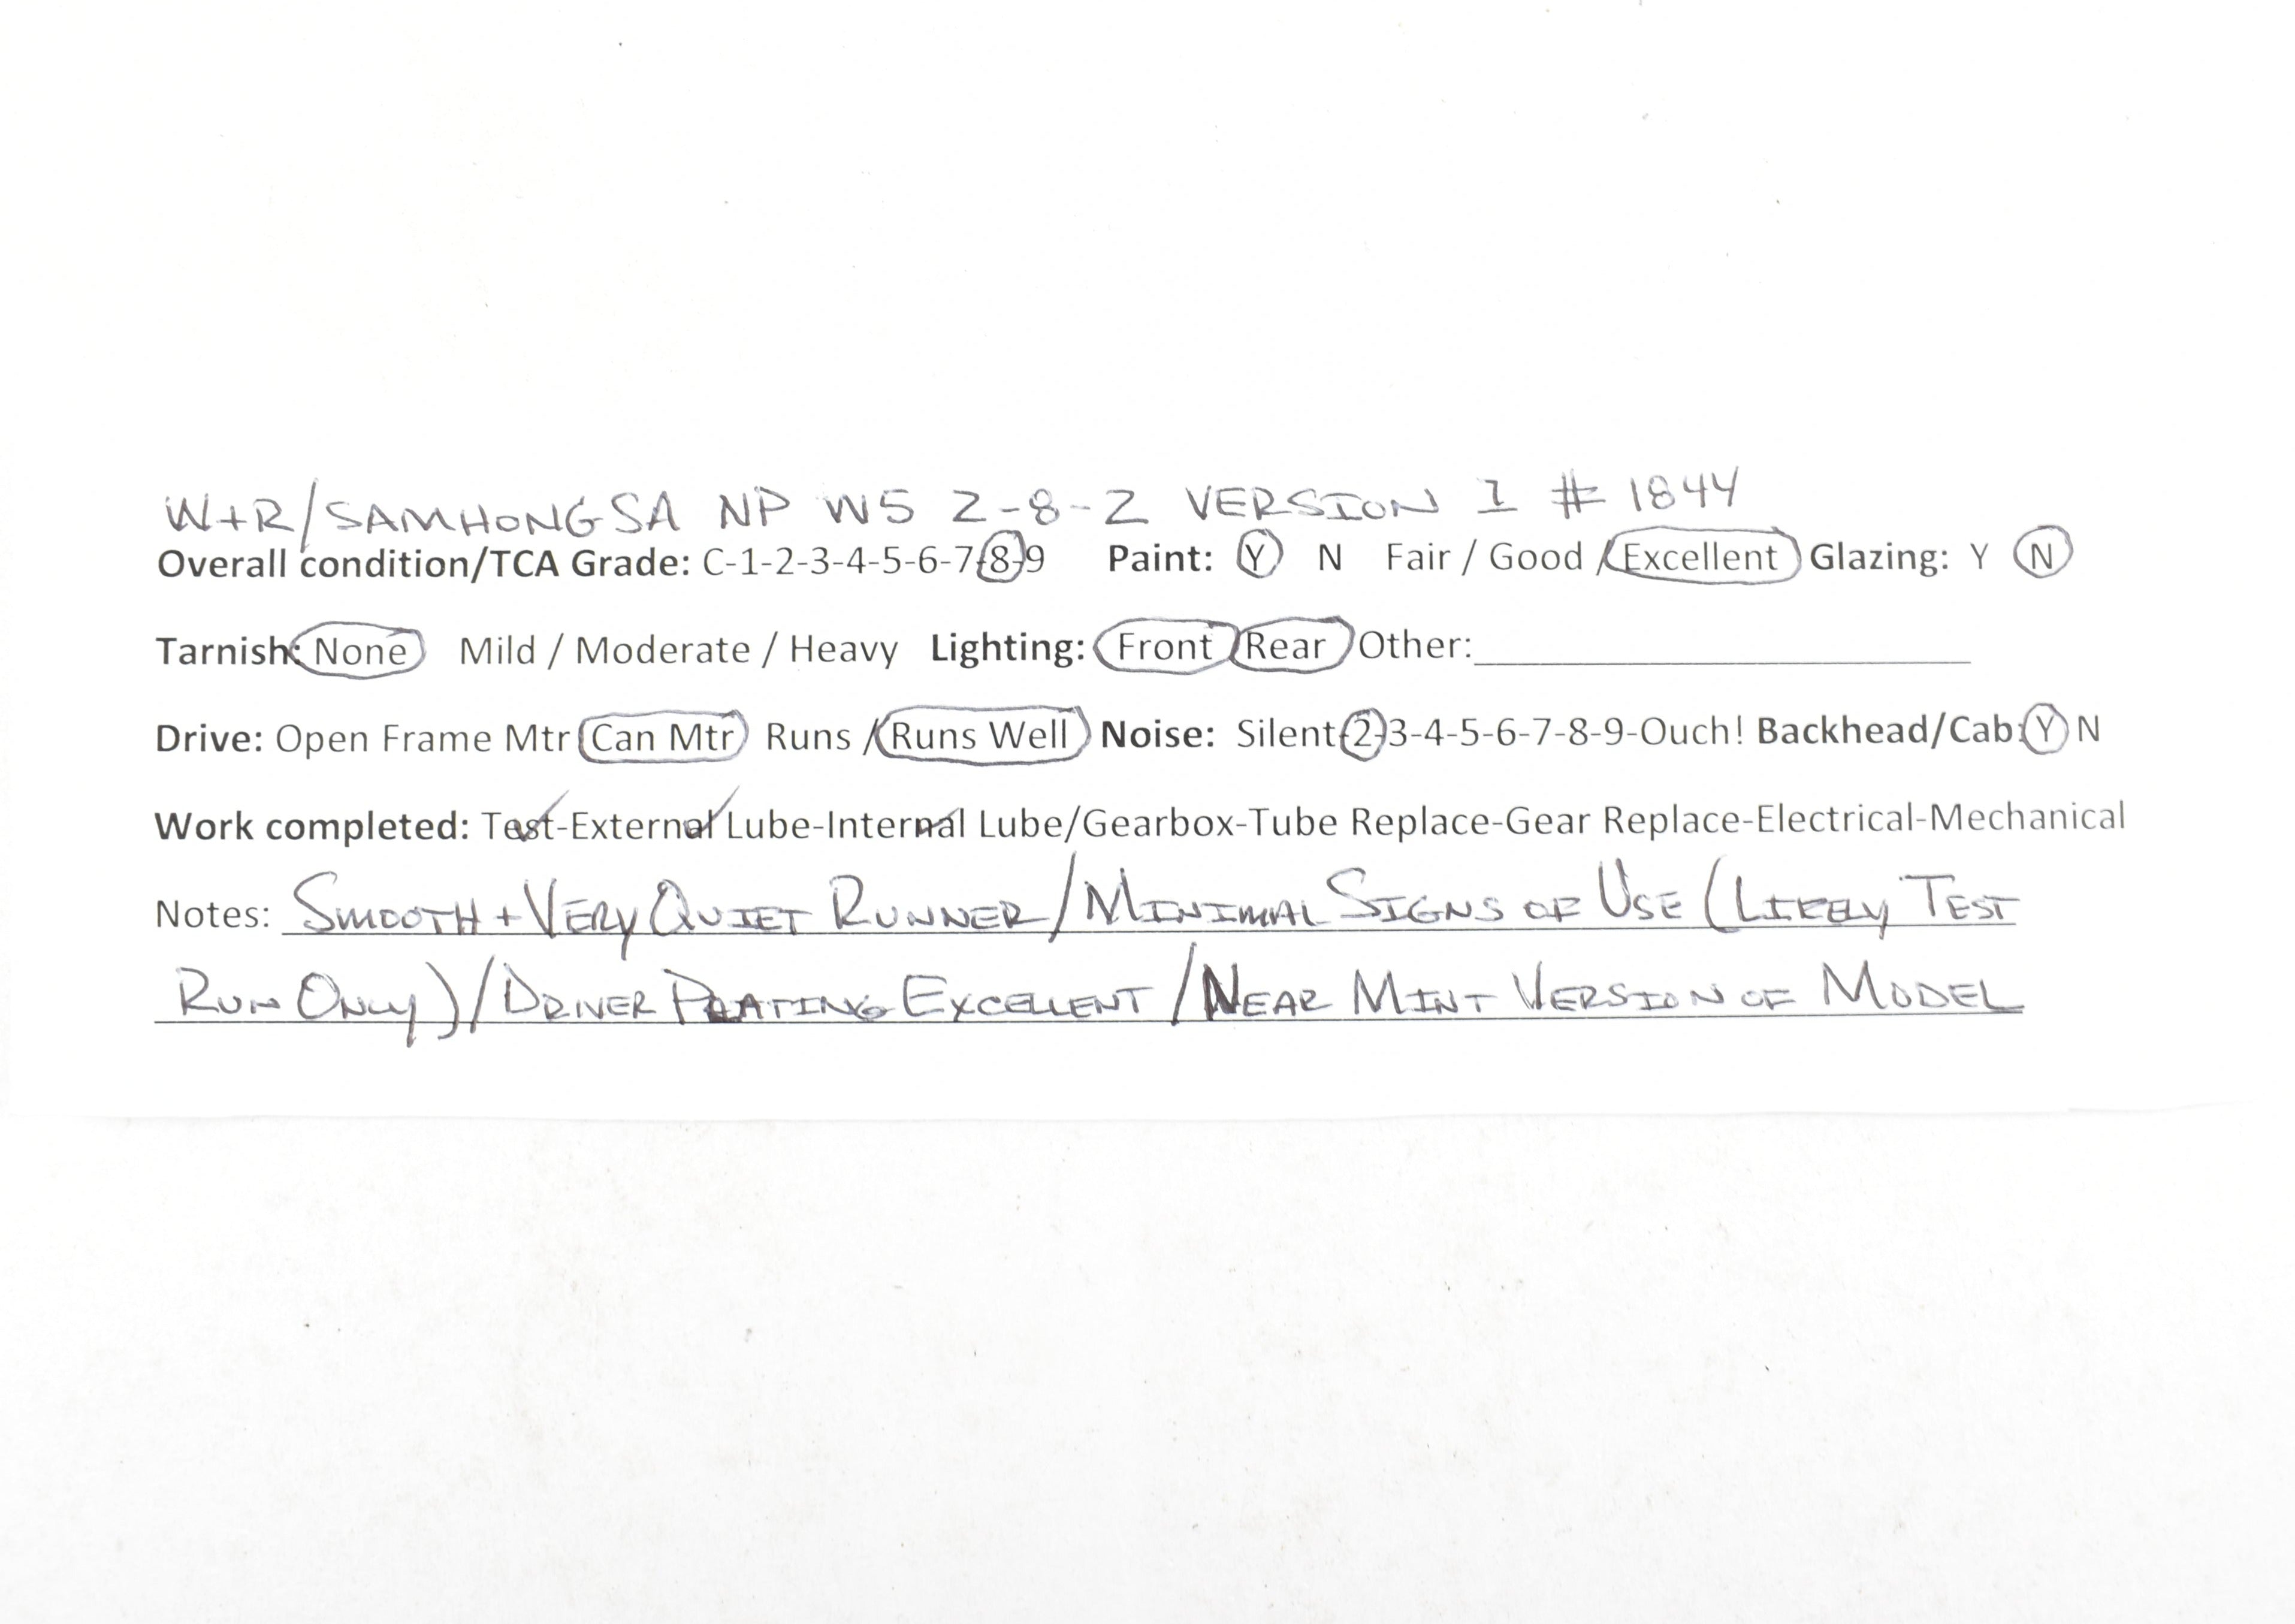 W+R/SAMHONGSA NP W5 2-8-2 VERSION 1 # 1844
Overall condition/TCA Grade: C-1-2-3-4-5-6-7-8-9 Paint: Y N Fair / Good / Excellent Glazing: Y N
Tarnish: None Mild / Moderate / Heavy Lighting: Front Rear Other:
Drive: Open Frame Mtr Can Mtr Runs / Runs Well Noise: Silent-2-3-4-5-6-7-8-9-Ouch! Backhead/Cab: Y N
Work completed: Test-External Lube-Internal Lube/Gearbox-Tube Replace-Gear Replace-Electrical-Mechanical
Notes: SMOOTH + VERY QUIET RUNNER / MINIMAL SIGNS OF USE (LIKELY TEST
RUN ONLY) / DRIVER PLATING EXCELLENT / NEAR MINT VERSION OF MODEL